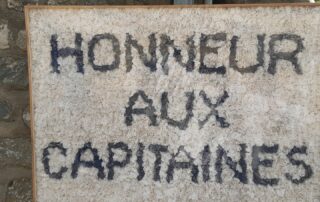 HONNEUR
AUX
CAPITAINES